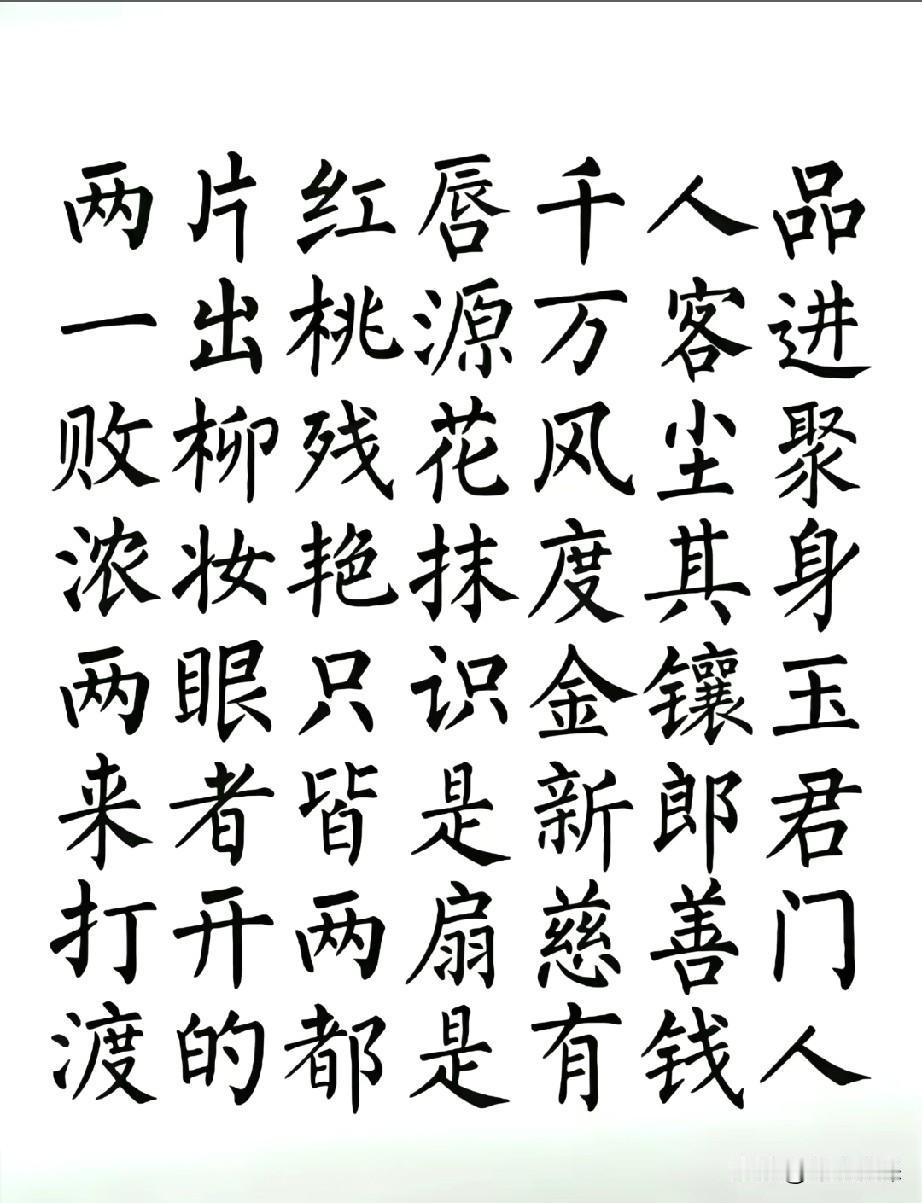 两片红唇千人品
一出桃源万客进
败柳残花风尘聚
浓妆艳抹度其身
两眼只识金镶玉
来者皆是新郎君
打开两扇慈善门
渡的都是有钱人